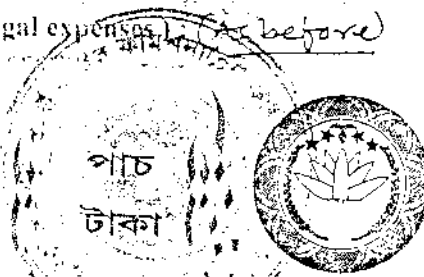 gal expenses) (As before)
পাচ
টাকা